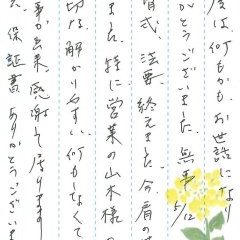 度は何もかもお世話になり
がとうございました。無事 5/12
眼式、法要終えました。今肩の
ました。特に営業の山木様の
切な解かりやすい何もしなくて
事が出来、感謝して居ります
保証書ありがとうございま